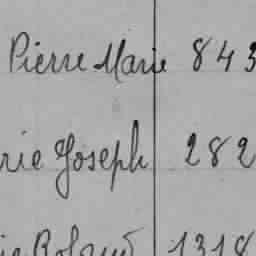 Pierre Marie 843
rie Joseph 282
1318